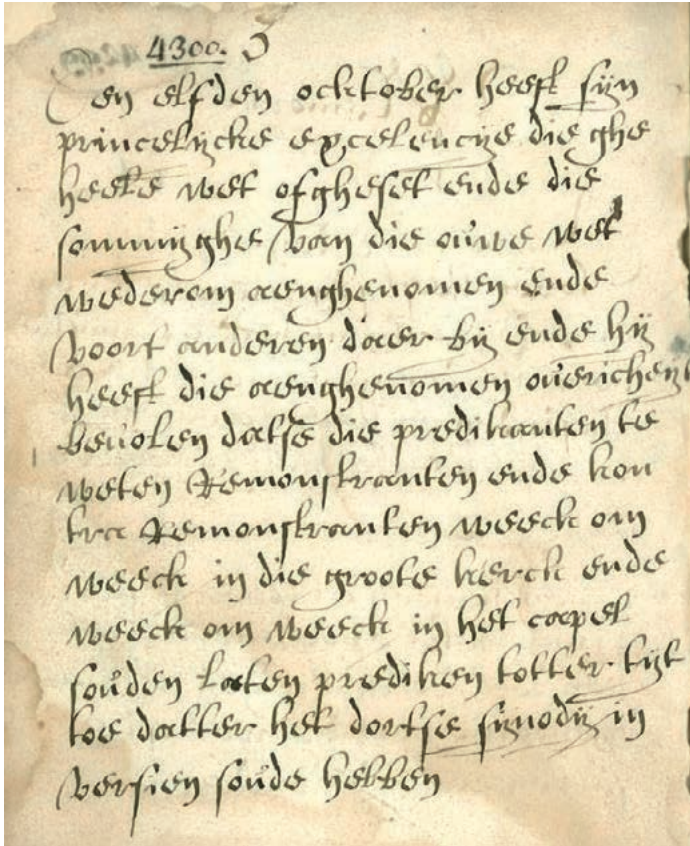 4300.
Den elfden ocktober heeft sijn
princelijcke excelencije die ghe
heele wet ofgheset ende die
sommijghe van die ouwe wet
wederom aenghenomen ende
voort anderen daer bij ende hij
heeft die aenghenomen overicheyt
bevolen datse die predikanten te
weten Remonstranten ende kon
tra Remonstranten weeck om
weeck in die groote kerck ende
weeck om weeck in het capel
souden laten prediken totter tijt
toe datter het dortse sijnodij in
versien soude hebben